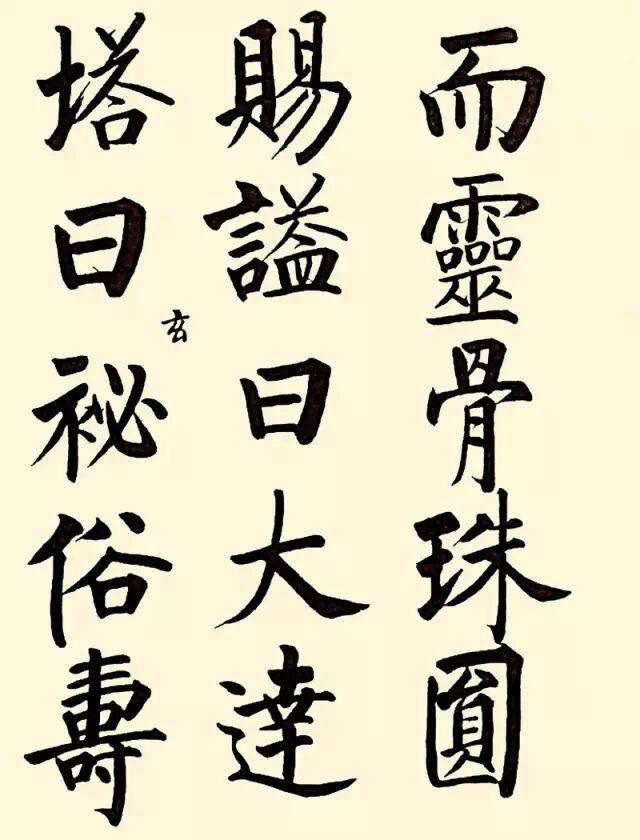 而靈骨珠圓
賜謚曰大達
塔曰玄祕俗壽